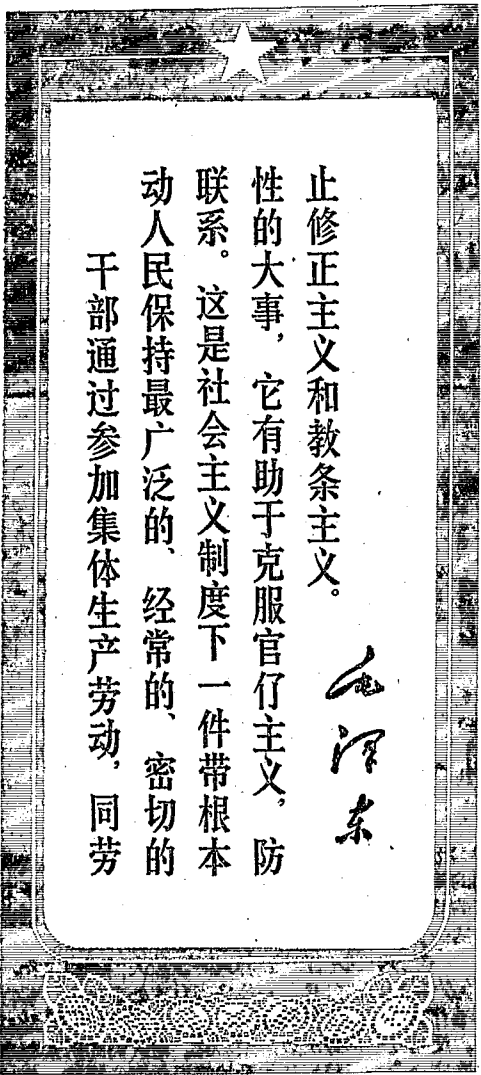 干部通过参加集体生产劳动，同劳
动人民保持最广泛的、经常的、密切的
联系。这是社会主义制度下一件带根本
性的大事，它有助于克服官仔主义，防
止修正主义和教条主义。
毛泽东